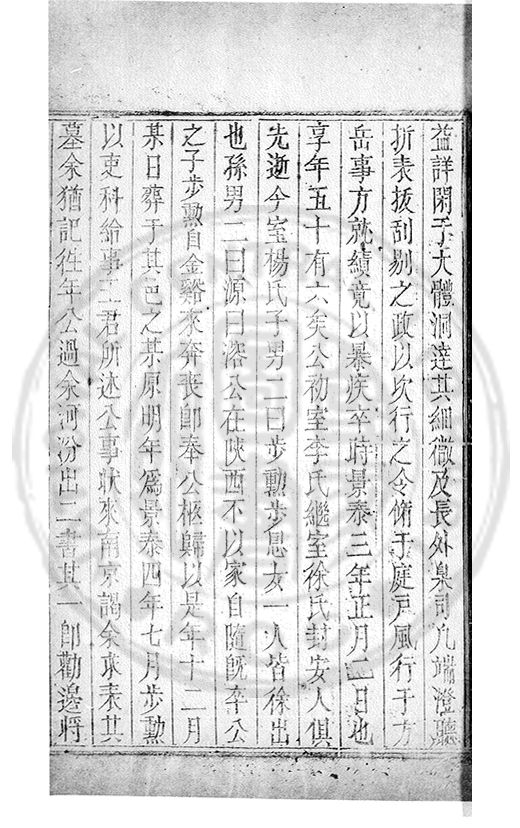 益詳閑于大體洞達其細微及長外臬司凡端澄聽
折表拔刮剔之政以次行之令脩于庭戶風行于方
岳事方就績竟以暴疾卒時景泰三年正月二日也
享年五十有六矣公初室李氏繼室徐氏封安人俱
先逝今室楊氏子男二曰步勲步恩女一人皆徐出
也孫男二曰源曰溶公在陝西不以家自隨旣卒公
之子步勲自金谿來奔喪卽奉公柩歸以是年十二月
某日葬于其邑之某原明年爲景泰四年七月步勲
以吏科給事王君所述公事狀來南京謁余求表其
墓余猶記徃年公過余河汾出二書其一卽勸邊將